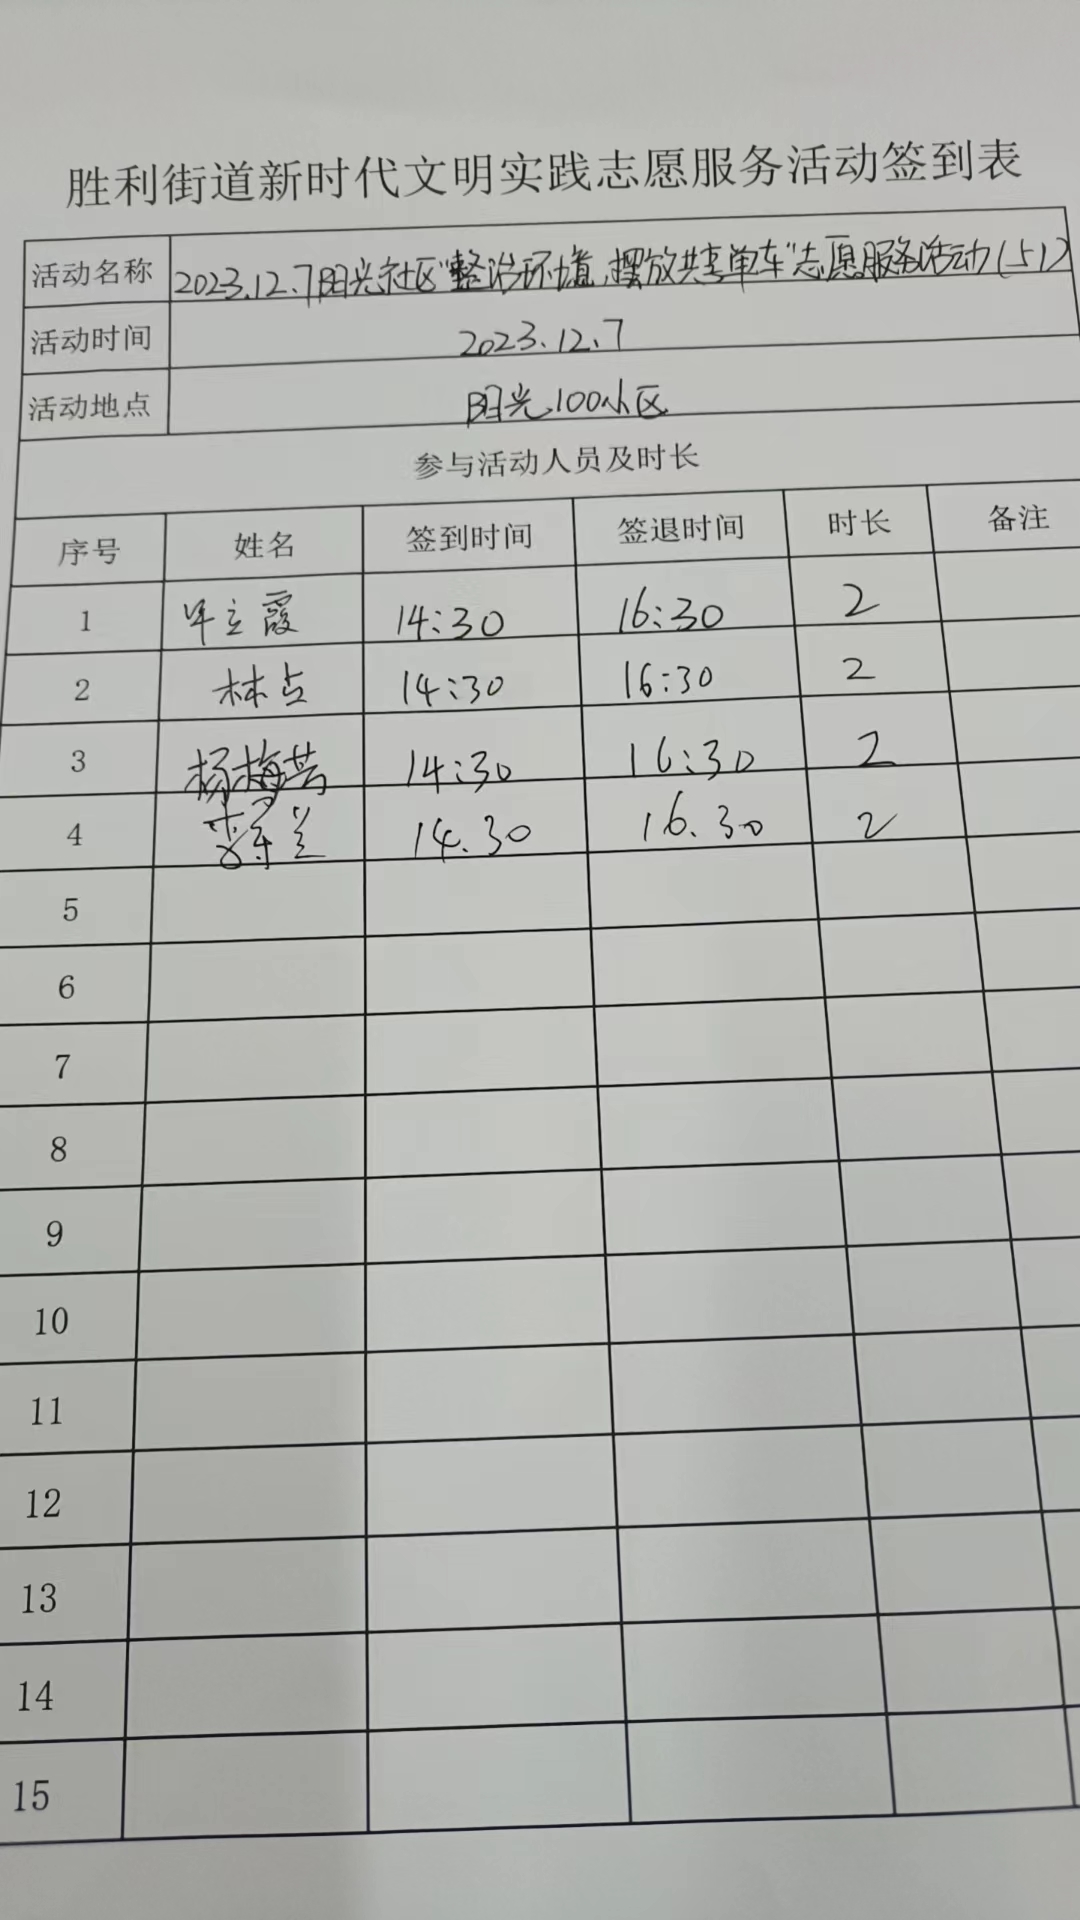 胜利街道新时代文明实践志愿服务活动签到表
活动名称 2023.12.7阳光社区"整治环境,摆放共享单车"志愿服务活动(51)
活动时间 2023.12.7
活动地点 阳光100小区
参与活动人员及时长
序号 姓名 签到时间 签退时间 时长 备注
1 立霞 14:30 16:30 2
2 林 14:30 16:30 2
3 杨梅芳 14:30 16:30 2
4 兰 14.30 16.30 2
5
6
7
8
9
10
11
12
13
14
15